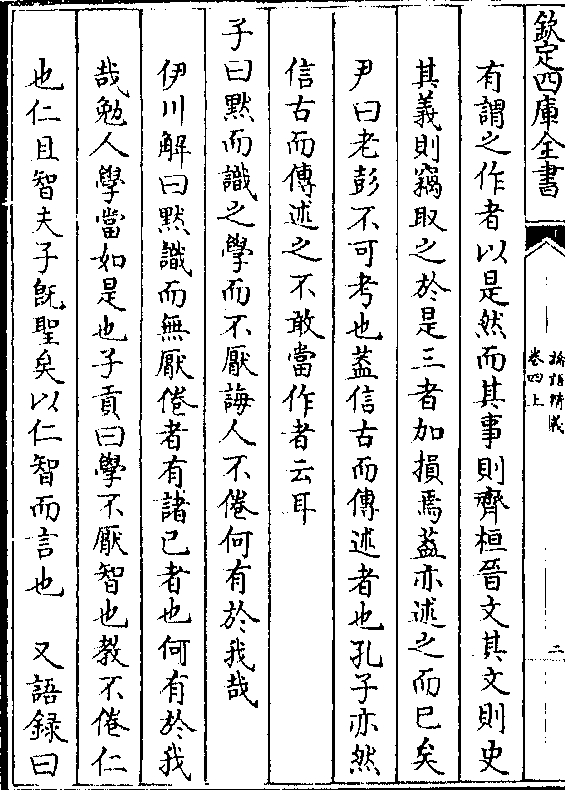 欽定四庫全書
論語精義
卷四上
二
有謂之作者以是然而其事則齊桓晉文其文則史
其義則竊取之於是三者加損焉葢亦述之而已矣
尹曰老彭不可考也葢信古而傳述者也孔子亦然
信古而傳述之不敢當作者云耳
子曰黙而識之學而不厭誨人不倦何有於我哉
伊川解曰黙識而無厭倦者有諸已者也何有於我
哉勉人學當如是也子貢曰學不厭智也教不倦仁
也仁且智夫子旣聖矣以仁智而言也 又語錄曰